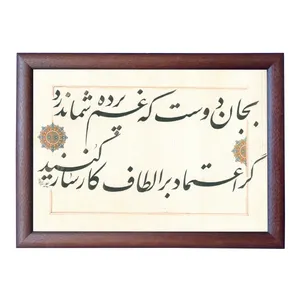 بجان دوست که غم پرده شما ندرد
گر اعتماد بر الطاف کارساز کنید